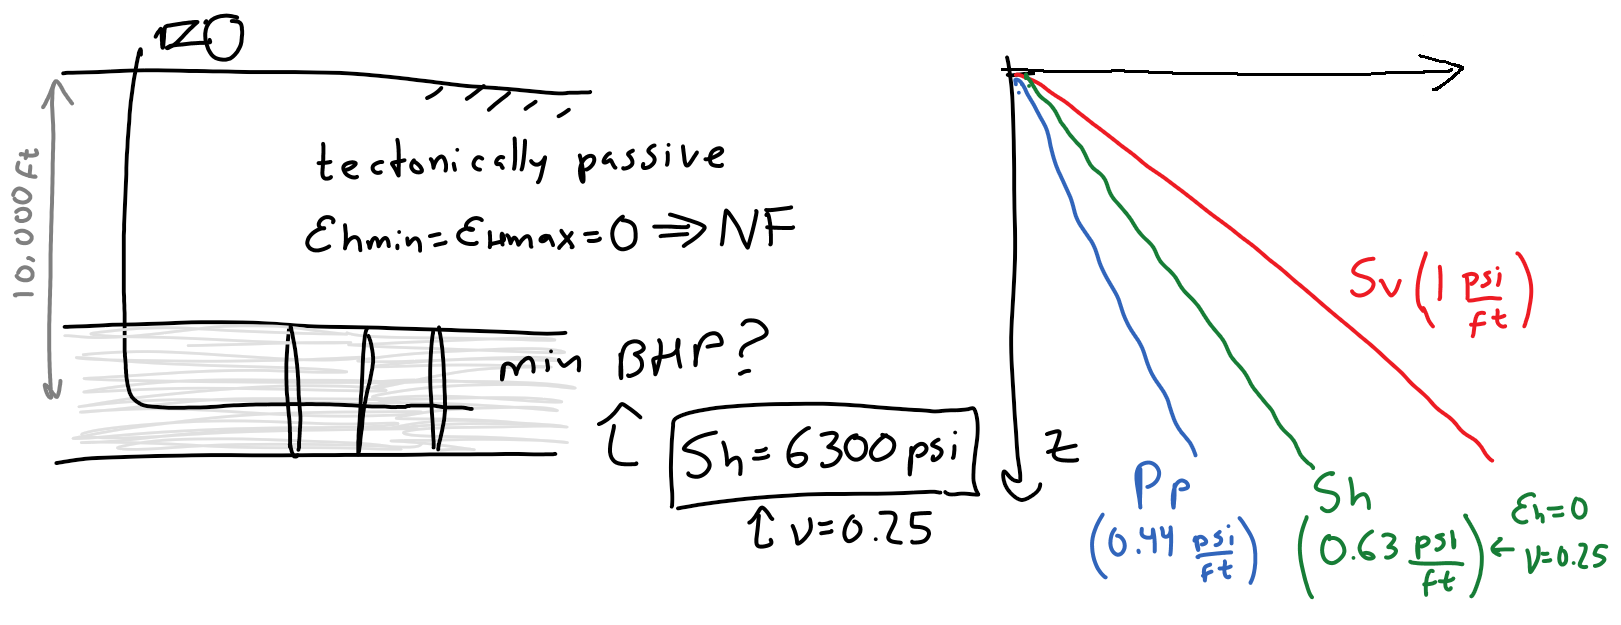 10,000ft
tectonically passive
εhmin = εHmax = 0 ⇒ NF
min BHP?
Sh = 6300 psi
↑ ν = 0.25
Sv (1 psi/ft)
z
Pp
(0.44 psi/ft)
Sh
(0.63 psi/ft) ←
εh = 0
ν = 0.25